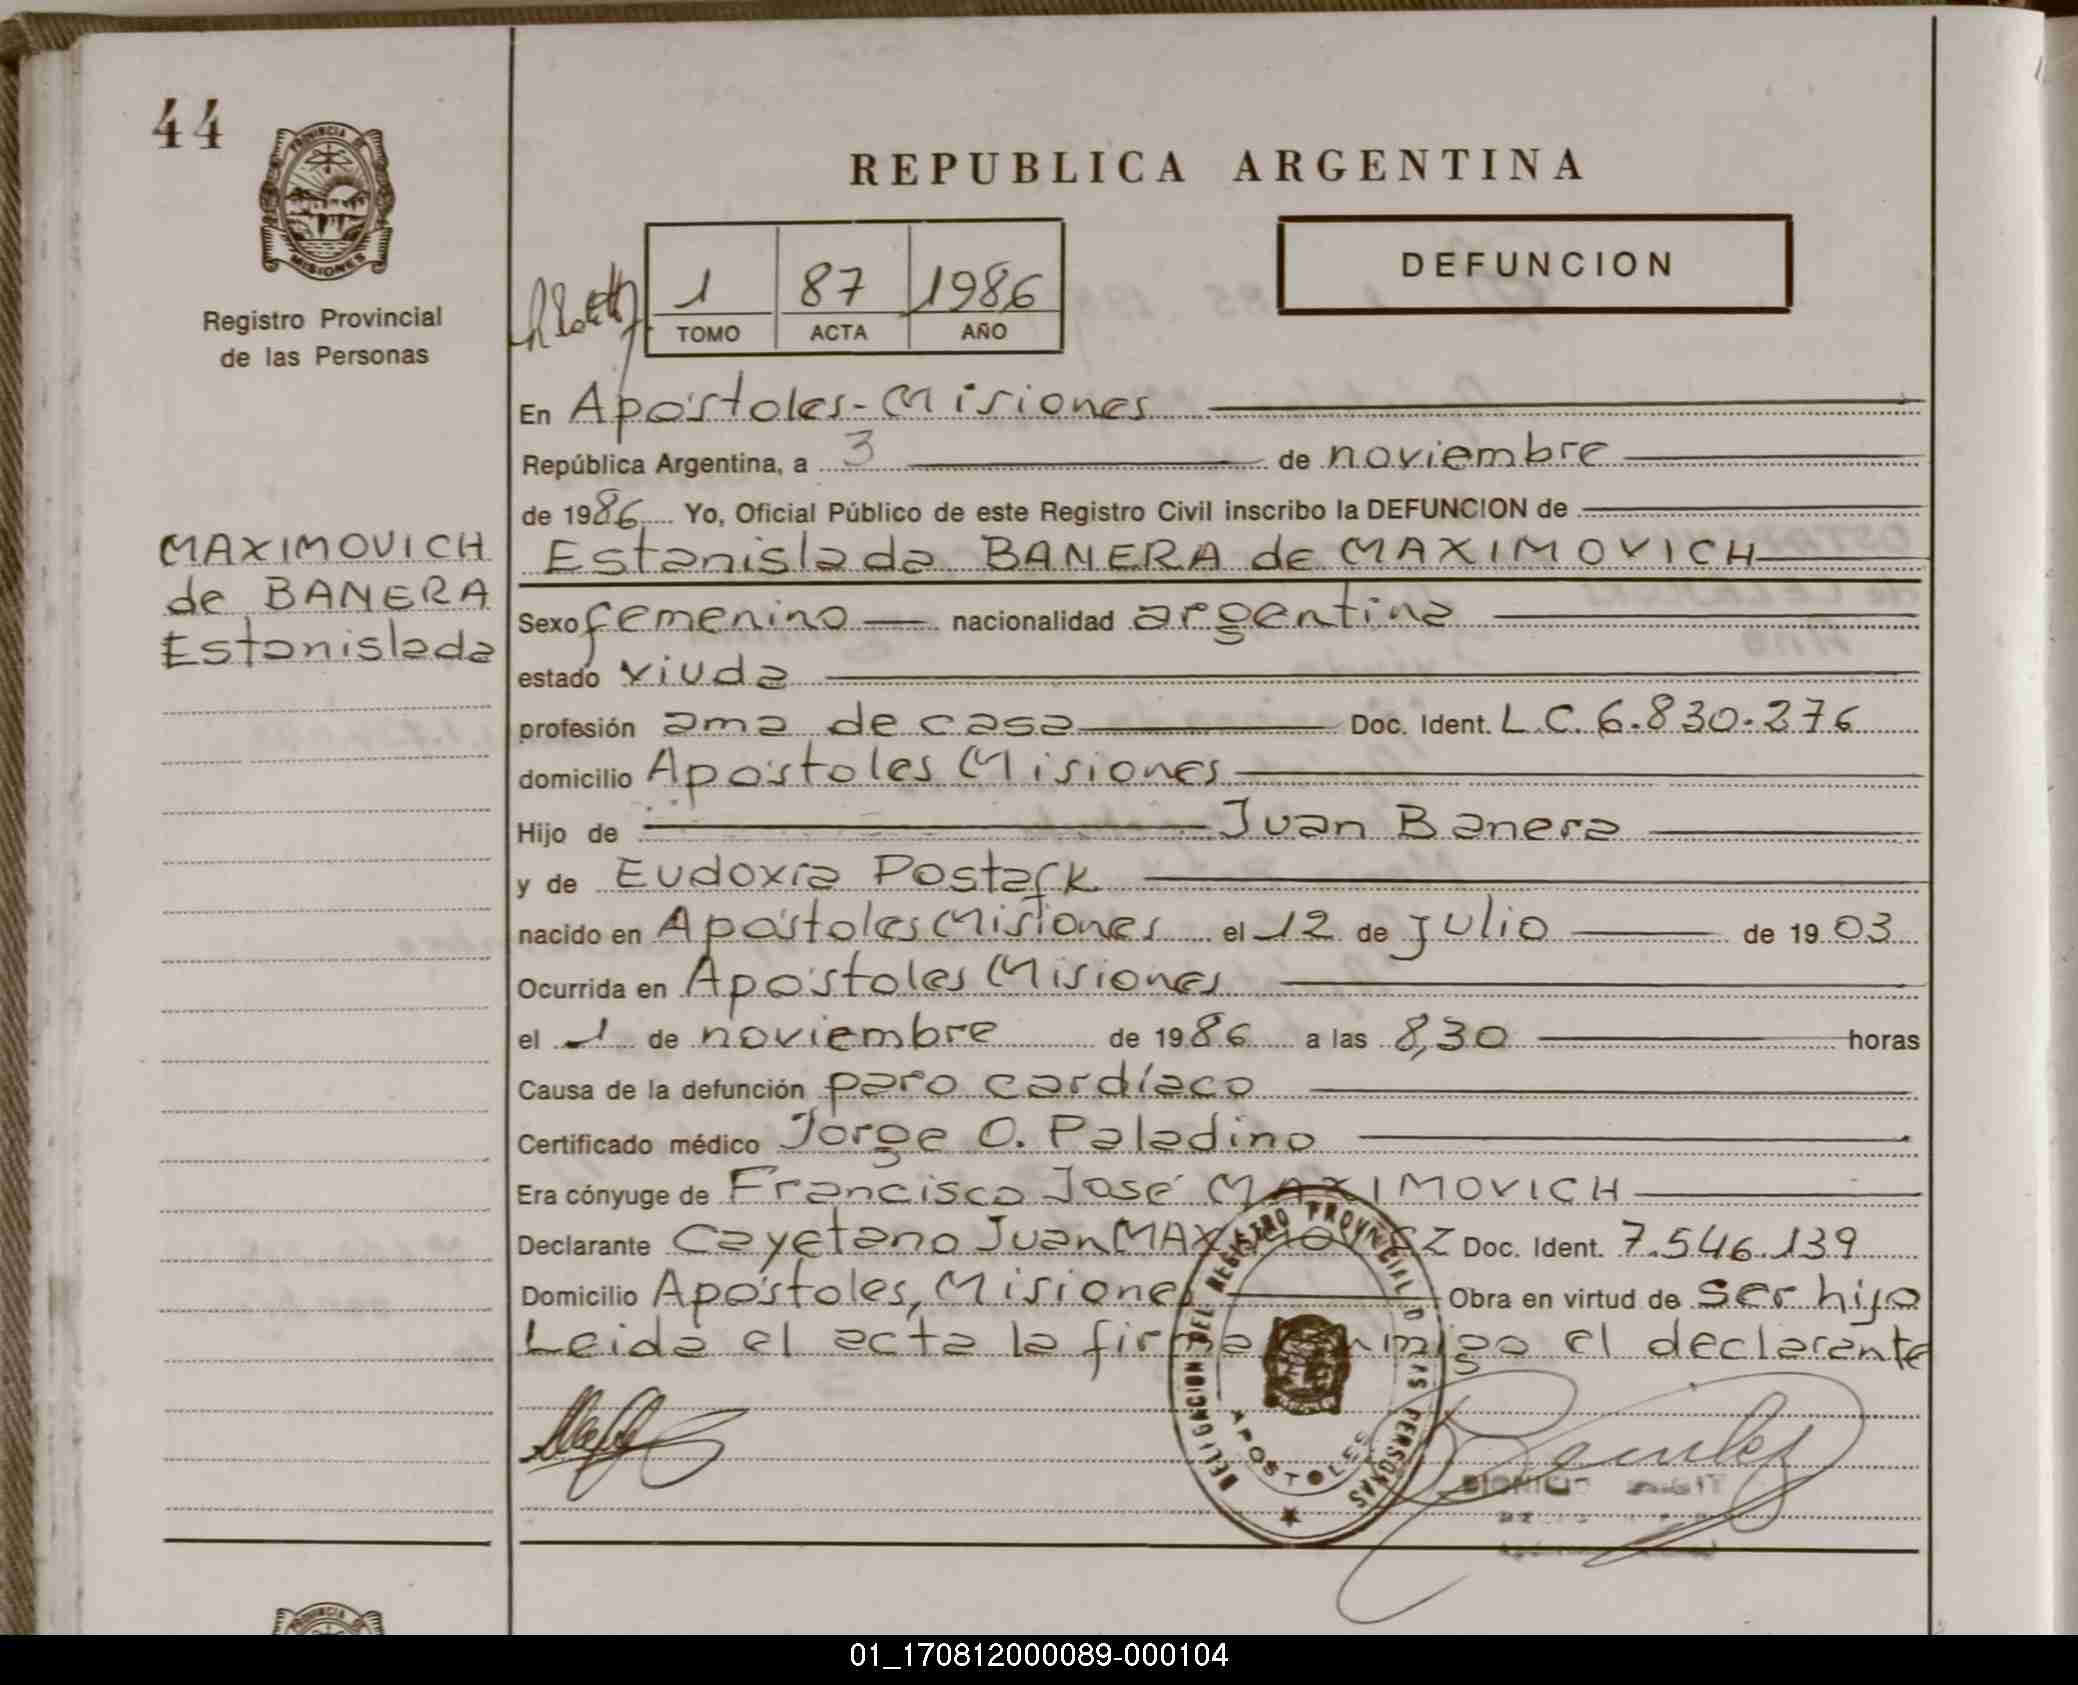 44
PROVINCIA DE
MISIONES
Registro Provincial
de las Personas
MAXIMOVICH
de BANERA
Estanislada
REPUBLICA ARGENTINA
1 87 1986
TOMO ACTA AÑO
DEFUNCION
En Apóstoles - Misiones
República Argentina, a 3 de noviembre
de 1986 Yo, Oficial Público de este Registro Civil inscribo la DEFUNCION de
Estanislada BANERA de MAXIMOVICH
Sexo femenino nacionalidad argentina
estado viuda
profesión ama de casa Doc. Ident. L.C. 6.830.276
domicilio Apóstoles Misiones
Hijo de Juan Banera
y de Eudoxia
nacido en Apóstoles Misiones el 12 de julio de 1903
Ocurrida en Apóstoles Misiones
el 1 de noviembre de 1986 a las 8,30 horas
Causa de la defunción paro cardíaco
Certificado médico Jorge O. Paladino
Era cónyuge de Francisco José MAXIMOVICH
Declarante Cayetano Juan Doc. Ident. 7.546.139
Domicilio Apóstoles, Misiones Obra en virtud de ser hijo
Leida el acta la firma conmigo el declarante
DELEGACION DEL REGISTRO PROVINCIAL DE LAS PERSONAS
APOSTOLES
01_170812000089-000104